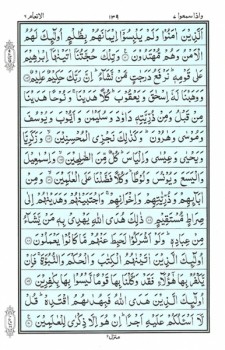 واذا سمعوا ٧ ١٣٩ الانعام ٦
اَلَّذِيْنَ اٰمَنُوْا وَلَمْ يَلْبِسُوْٓا اِيْمَانَهُمْ بِظُلْمٍ اُولٰٓئِكَ لَهُمُ
الْاَمْنُ وَهُمْ مُّهْتَدُوْنَ ۝ وَتِلْكَ حُجَّتُنَآ اٰتَيْنٰهَآ اِبْرٰهِيْمَ
عَلٰى قَوْمِهٖ ؕ نَرْفَعُ دَرَجٰتٍ مَّنْ نَّشَآءُ ؕ اِنَّ رَبَّكَ حَكِيْمٌ عَلِيْمٌ ۝
وَوَهَبْنَا لَهٗٓ اِسْحٰقَ وَيَعْقُوْبَ ؕ كُلًّا هَدَيْنَا ۚ وَنُوْحًا هَدَيْنَا
مِنْ قَبْلُ وَمِنْ ذُرِّيَّتِهٖ دَاوٗدَ وَسُلَيْمٰنَ وَاَيُّوْبَ وَيُوْسُفَ
وَمُوْسٰى وَهٰرُوْنَ ؕ وَكَذٰلِكَ نَجْزِى الْمُحْسِنِيْنَ ۝ وَزَكَرِيَّا
وَيَحْيٰى وَعِيْسٰى وَاِلْيَاسَ ؕ كُلٌّ مِّنَ الصّٰلِحِيْنَ ۝ وَاِسْمٰعِيْلَ
وَالْيَسَعَ وَيُوْنُسَ وَلُوْطًا ؕ وَكُلًّا فَضَّلْنَا عَلَى الْعٰلَمِيْنَ ۝ وَمِنْ
اٰبَآئِهِمْ وَذُرِّيّٰتِهِمْ وَاِخْوَانِهِمْ ۚ وَاجْتَبَيْنٰهُمْ وَهَدَيْنٰهُمْ اِلٰى
صِرَاطٍ مُّسْتَقِيْمٍ ۝ ذٰلِكَ هُدَى اللّٰهِ يَهْدِىْ بِهٖ مَنْ يَّشَآءُ
مِنْ عِبَادِهٖ ؕ وَلَوْ اَشْرَكُوْا لَحَبِطَ عَنْهُمْ مَّا كَانُوْا يَعْمَلُوْنَ ۝
اُولٰٓئِكَ الَّذِيْنَ اٰتَيْنٰهُمُ الْكِتٰبَ وَالْحُكْمَ وَالنُّبُوَّةَ ۚ فَاِنْ
يَّكْفُرْ بِهَا هٰٓؤُلَآءِ فَقَدْ وَكَّلْنَا بِهَا قَوْمًا لَّيْسُوْا بِهَا بِكٰفِرِيْنَ ۝
اُولٰٓئِكَ الَّذِيْنَ هَدَى اللّٰهُ فَبِهُدٰىهُمُ اقْتَدِهْ ؕ قُلْ
لَّآ اَسْـَٔلُكُمْ عَلَيْهِ اَجْرًا ؕ اِنْ هُوَ اِلَّا ذِكْرٰى لِلْعٰلَمِيْنَ ۝
منزل ٢